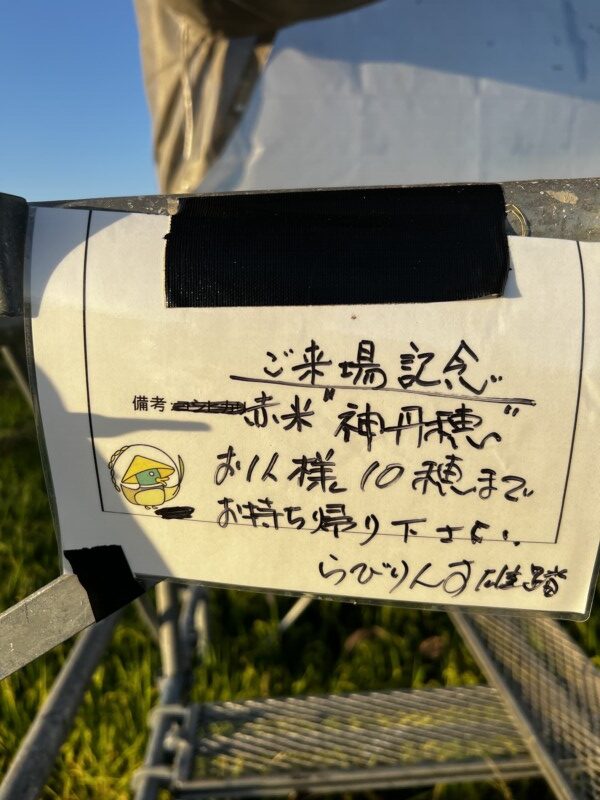 ご来場記念
備考 赤米"神丹穂"
お1人様10穂まで
お持ち帰り下さい。
らびりんす雄踏